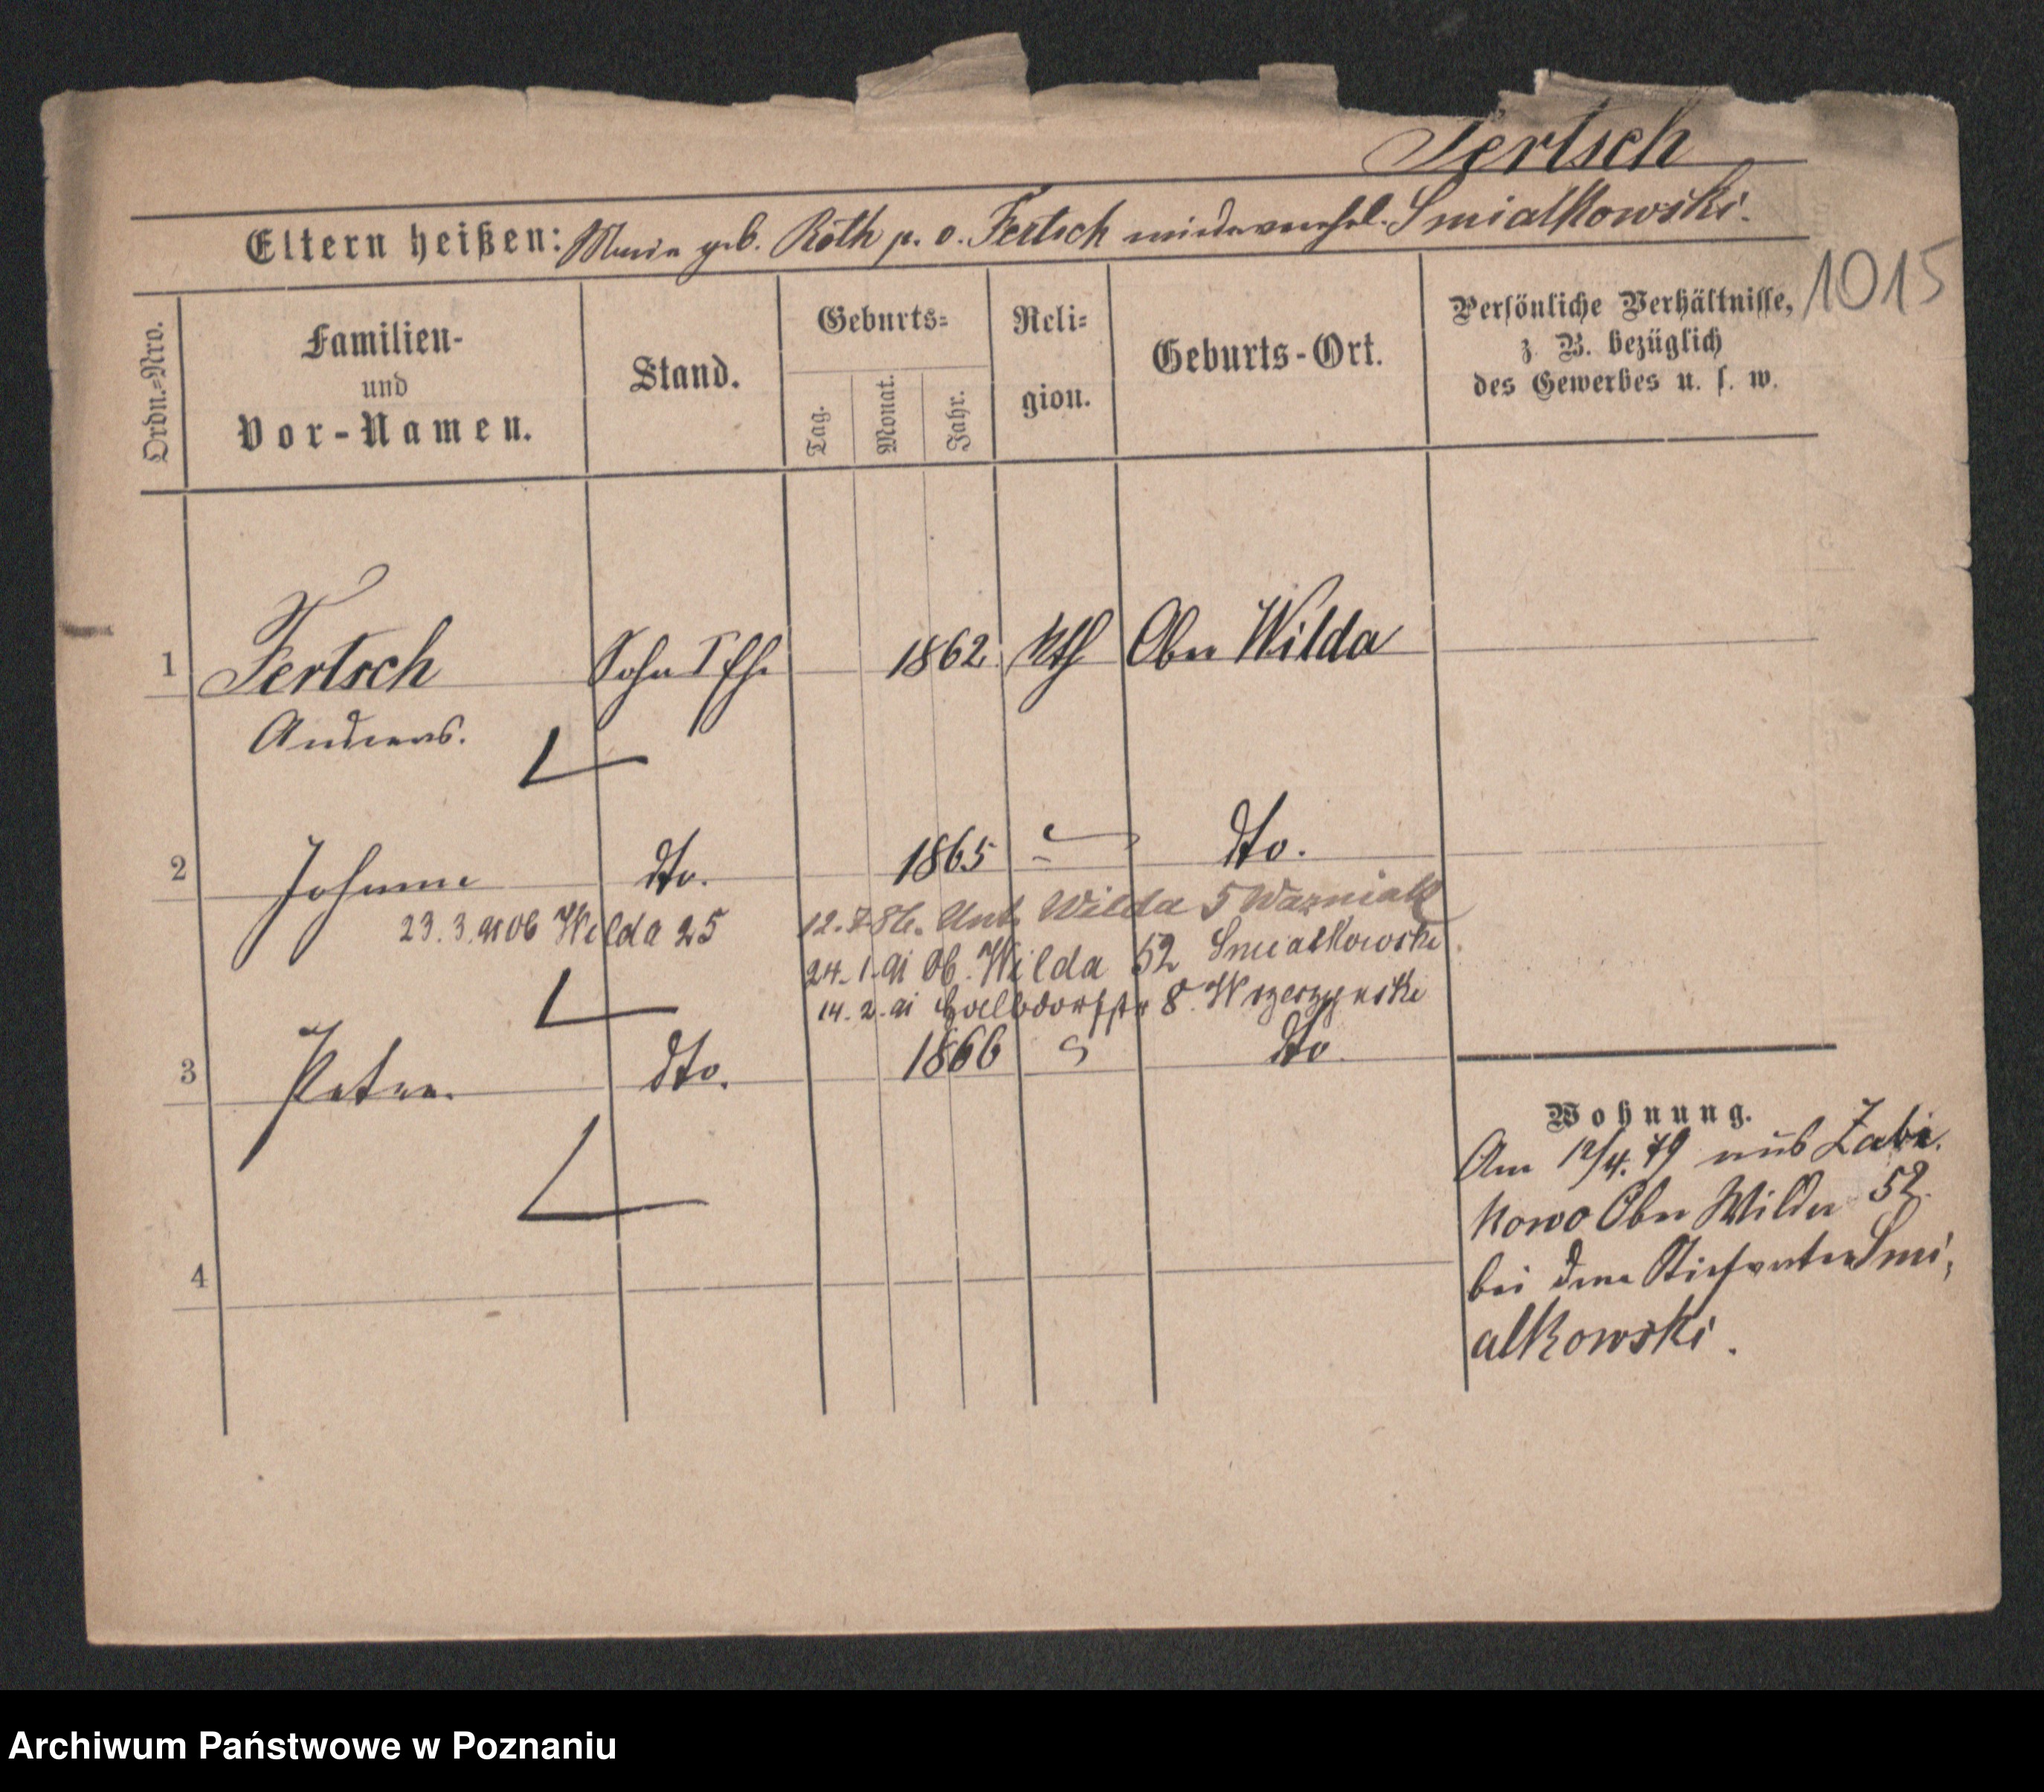 Fertsch
Eltern heißen: Maria geb. Röth p. v. Fertsch wiederverehel. Smialkowski.
1015
Ordn.=Nro.
Familien-
und
Vor-Namen.
Stand.
Geburts=
Tag.
Monat.
Jahr.
Reli=
gion.
Geburts-Ort.
Persönliche Verhältnisse,
z. B. bezüglich
des Gewerbes u. s. w.
1 Fertsch Sohn 1862 kth Ober Wilda
Andreas.
2 Johann dto. 1865 dto.
23.3.91 Ob Wilda 25
12.7.86. Unt. Wilda 5 Wazniak
24.1.91 Ob. Wilda 52 Smialkowski
14.2.91 8. Wrzeszynski
3 Peter. dto. 1866 dto.
4
Wohnung.
Am 12/4. 79 aus Zabi-
kowo Ober Wilda 52.
bei dem Stiefvater Smi-
alkowski.
Archiwum Państwowe w Poznaniu